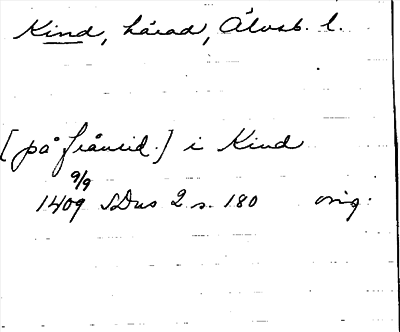 Kind, härad, Älvsb. l.
[på frånsid.] i Kind
9/9
1409 SDns 2 s. 180 orig.